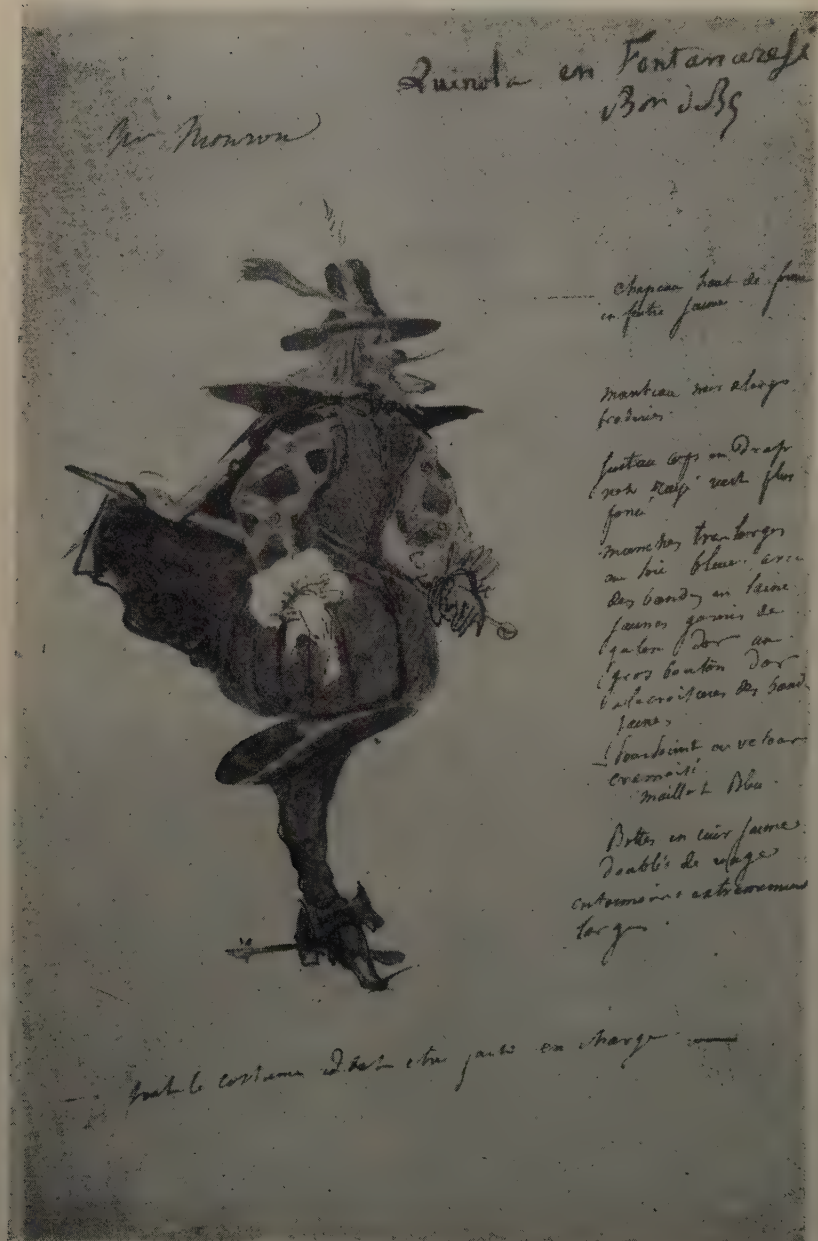 Quinola en Fontanaresi
Mr Monrou
chapeau haut de forme
en feutre jaune
manteau noir a large
broderies
justau corps en Drap
vert rayé vert plus
foncé
manches tres larges
en soie bleue avec
des bandes en laine
jaunes garnis de
galon d'or un
gros bouton d'or
des band
jaunes
en velours
cramoisi
maillot Bleu
Bottes en cuir jaune
doublés de rouge
entonnoirs extremement
larges
tout le costume doit etre fait en charge